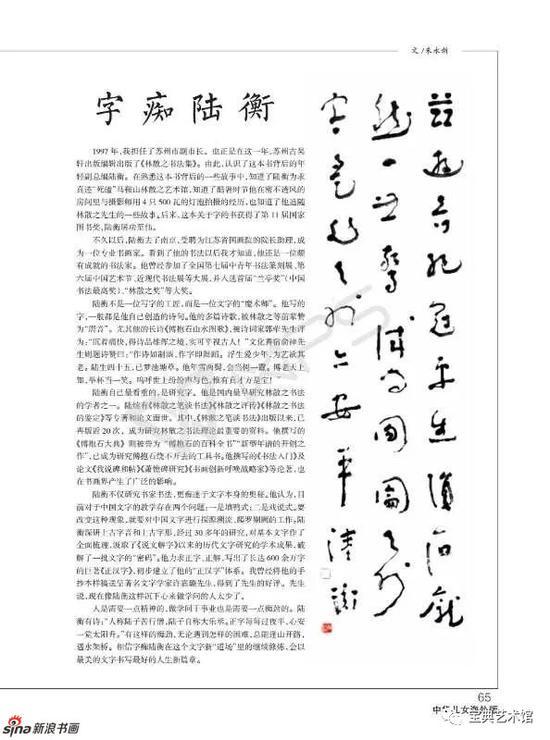 文/朱永新
字痴陆衡
1997年,我担任了苏州市副市长。也正是在这一年,苏州古吴
轩出版编辑出版了《林散之书法集》。由此,认识了这本书背后的年
轻副总编陆衡。在熟悉这本书背后的一些故事中,知道了陆衡为求
真迹“死磕”马鞍山林散之艺术馆,知道了酷暑时节他在密不透风的
房间里与摄影师用4只500瓦的灯泡拍摄的经历,也知道了他追随
林散之先生的一些故事。后来,这本关于字的书获得了第11届国家
图书奖,陆衡居功至伟。
不久以后,陆衡去了南京,受聘为江苏省国画院的院长助理,成
为一位专业书画家。看到了他的书法以后我才知道,他还是一位颇
有成就的书法家。他曾经参加了全国第七届中青年书法篆刻展、第
六届中国艺术节、近现代书法展等大展,并入选首届“兰亭奖”《中国
书法最高奖》、“林散之奖”等大奖。
陆衡不是一位写字的工匠,而是一位文字的“魔术师”。他写的
字,一般都是他自己创造的诗句。他的多篇诗歌,被林散之等前辈赞
为“唐音”。尤其他的长诗《傅抱石山水图歌》,被诗词家郭牟先生评
为:“沉着痛快,得诗品雄浑之境,实可平视古人!”文化耆宿俞律先
生则题诗赞曰:“作诗如制画,作字即舞蹈。浮生爱少年,为艺欲其
老。陆生四十五,已梦池塘草。他年雪两鬓,会当树一纛。傅老天上
知,举杯当一笑。呜呼世上纷纷声与色,惟有真才方是宝!”
陆衡自己最看重的,是研究字。他是国内最早研究林散之书法
的学者之一。陆续有《林散之笔谈书法》《林散之评传》《林散之书法
的鉴定》等专著和论文面世。其中,《林散之笔谈书法》出版以来,已
再版近20次,成为研究林散之书法理论最重要的资料。他撰写的
《傅抱石大典》则被誉为“傅抱石的百科全书”“新型年谱的开创之
作”,已成为研究傅抱石绕不开去的工具书。他撰写的《书法入门》及
论文《我说碑和帖》《萧憺碑研究》《书画创新呼唤战略家》等论著,也
在书画界产生了广泛的影响。
陆衡不仅研究书家书法,更痴迷于文字本身的奥秘。他认为,目
前对于中国文字的教学存在两个问题:一是填鸭式;二是戏说式。要
改变这种现象,就要对中国文字进行探源溯流、爬罗剔剜的工作。陆
衡深研上古字音和上古字形,经过30多年的研究,对基本文字作了
全面梳理,汲取了《说文解字》以来的历代文字研究的学术成果,破
解了一批文字的“密码”。他力求正字、正解,写出了长达600余万字
的巨著《正汉字》,初步建立了他的“正汉字”体系。我曾经将他的手
抄本样稿送呈著名文字学家许嘉璐先生,得到了先生的好评。先生
说,现在像陆衡这样沉下心来做学问的人太少了。
人是需要一点精神的,做学问干事业也是需要一点痴劲的。陆
衡有诗:“人称陆子苦行僧,陆子自称大乐承。正字每每过夜半,心安
一觉太阳升。”有这样的痴劲,无论遇到怎样的困难,总能逢山开路,
遇水架桥。相信字痴陆衡在这个文字新“道场”里的继续修炼,会以
最美的文字书写最好的人生新篇章。
65
中华儿女海外版
sina新浪书画
宝典艺术馆